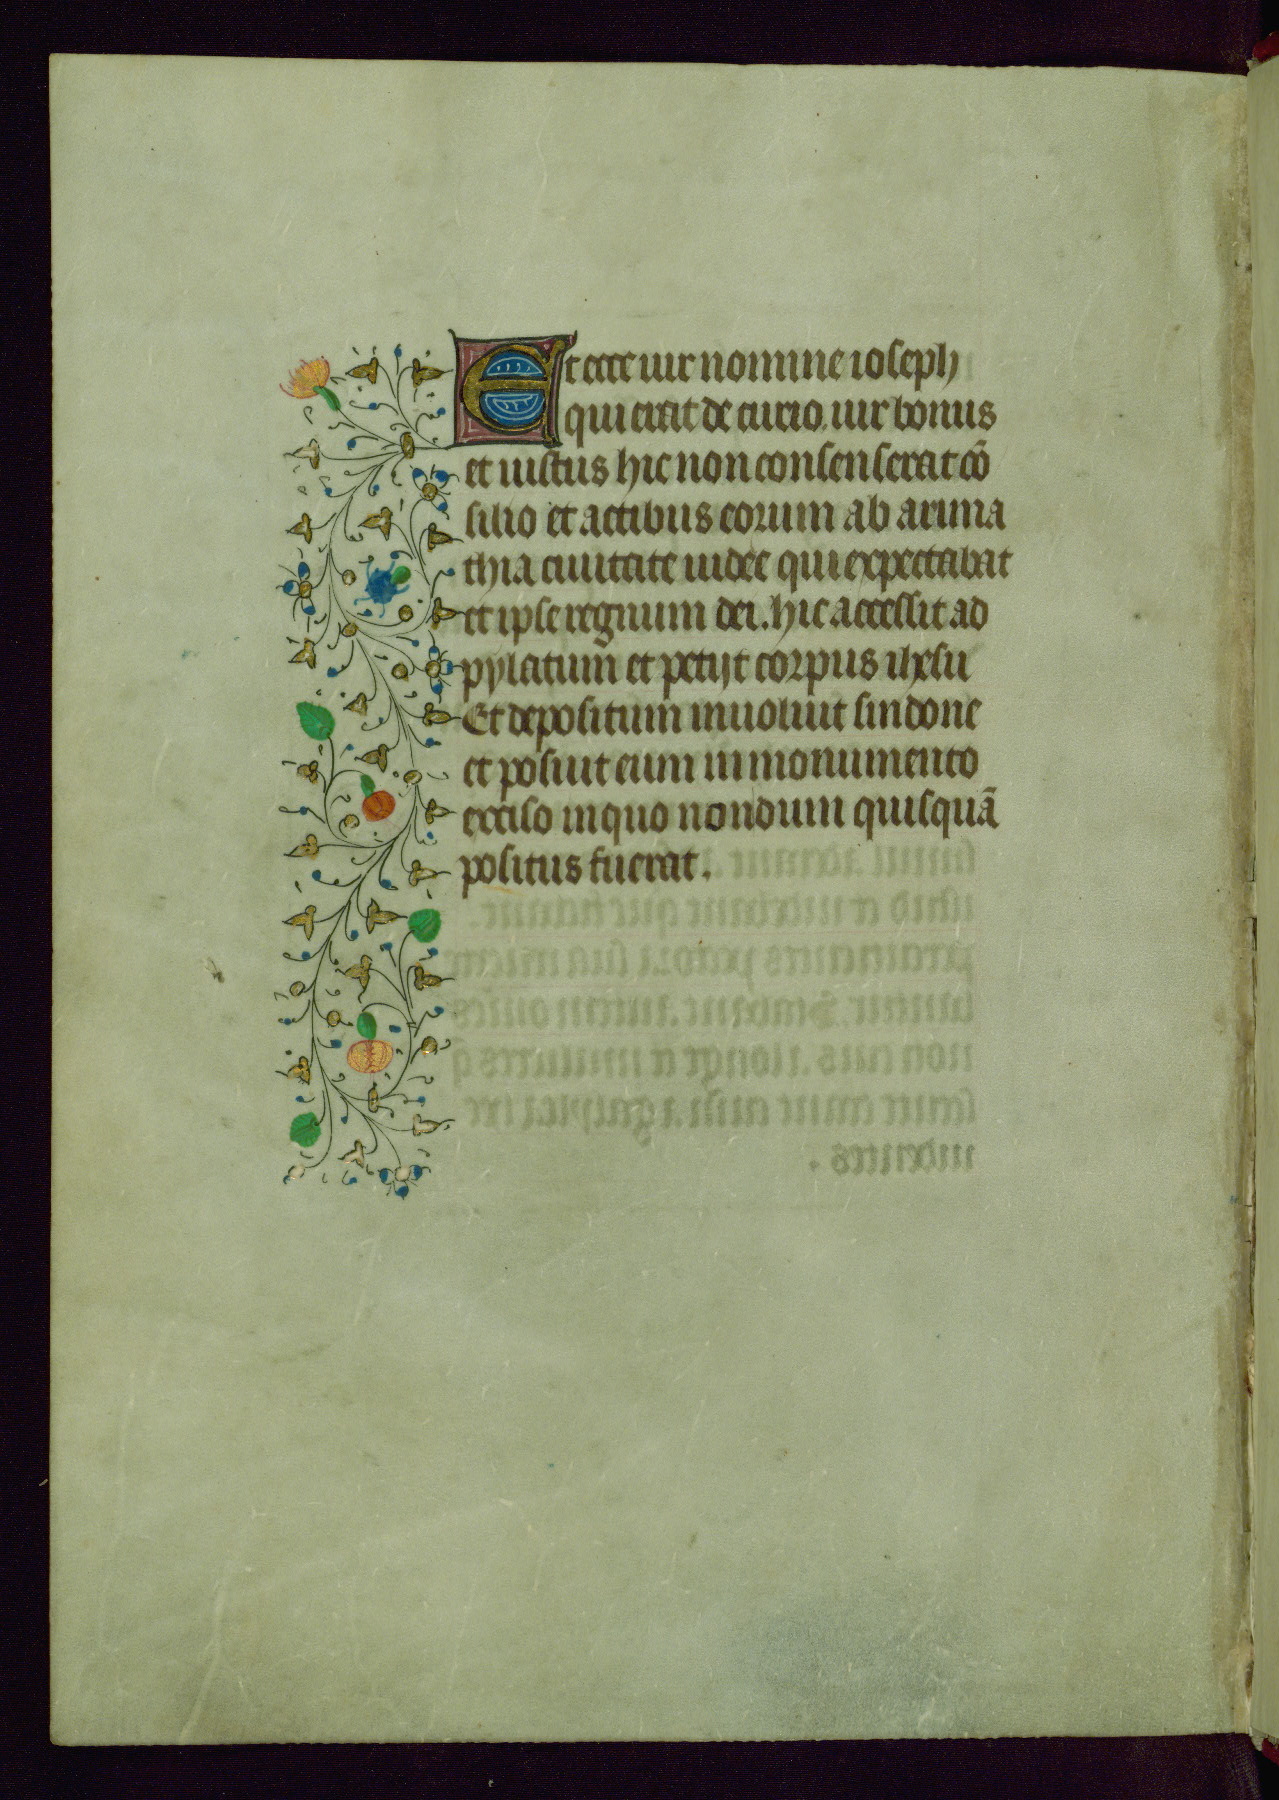 Et ecce uir nomine ioseph
qui erat de curio. uir bonus
et iustus hic non consenserat cō
silio et actibus eorum ab arima
thia ciuitate iudee qui expectabat
et ipse regnum dei. hic accessit ad
pylatum et petijt corpus ihesu
Et depositum inuoluit sindone
et posuit eum in monumento
exciso in quo nondum quisquā
positus fuerat.